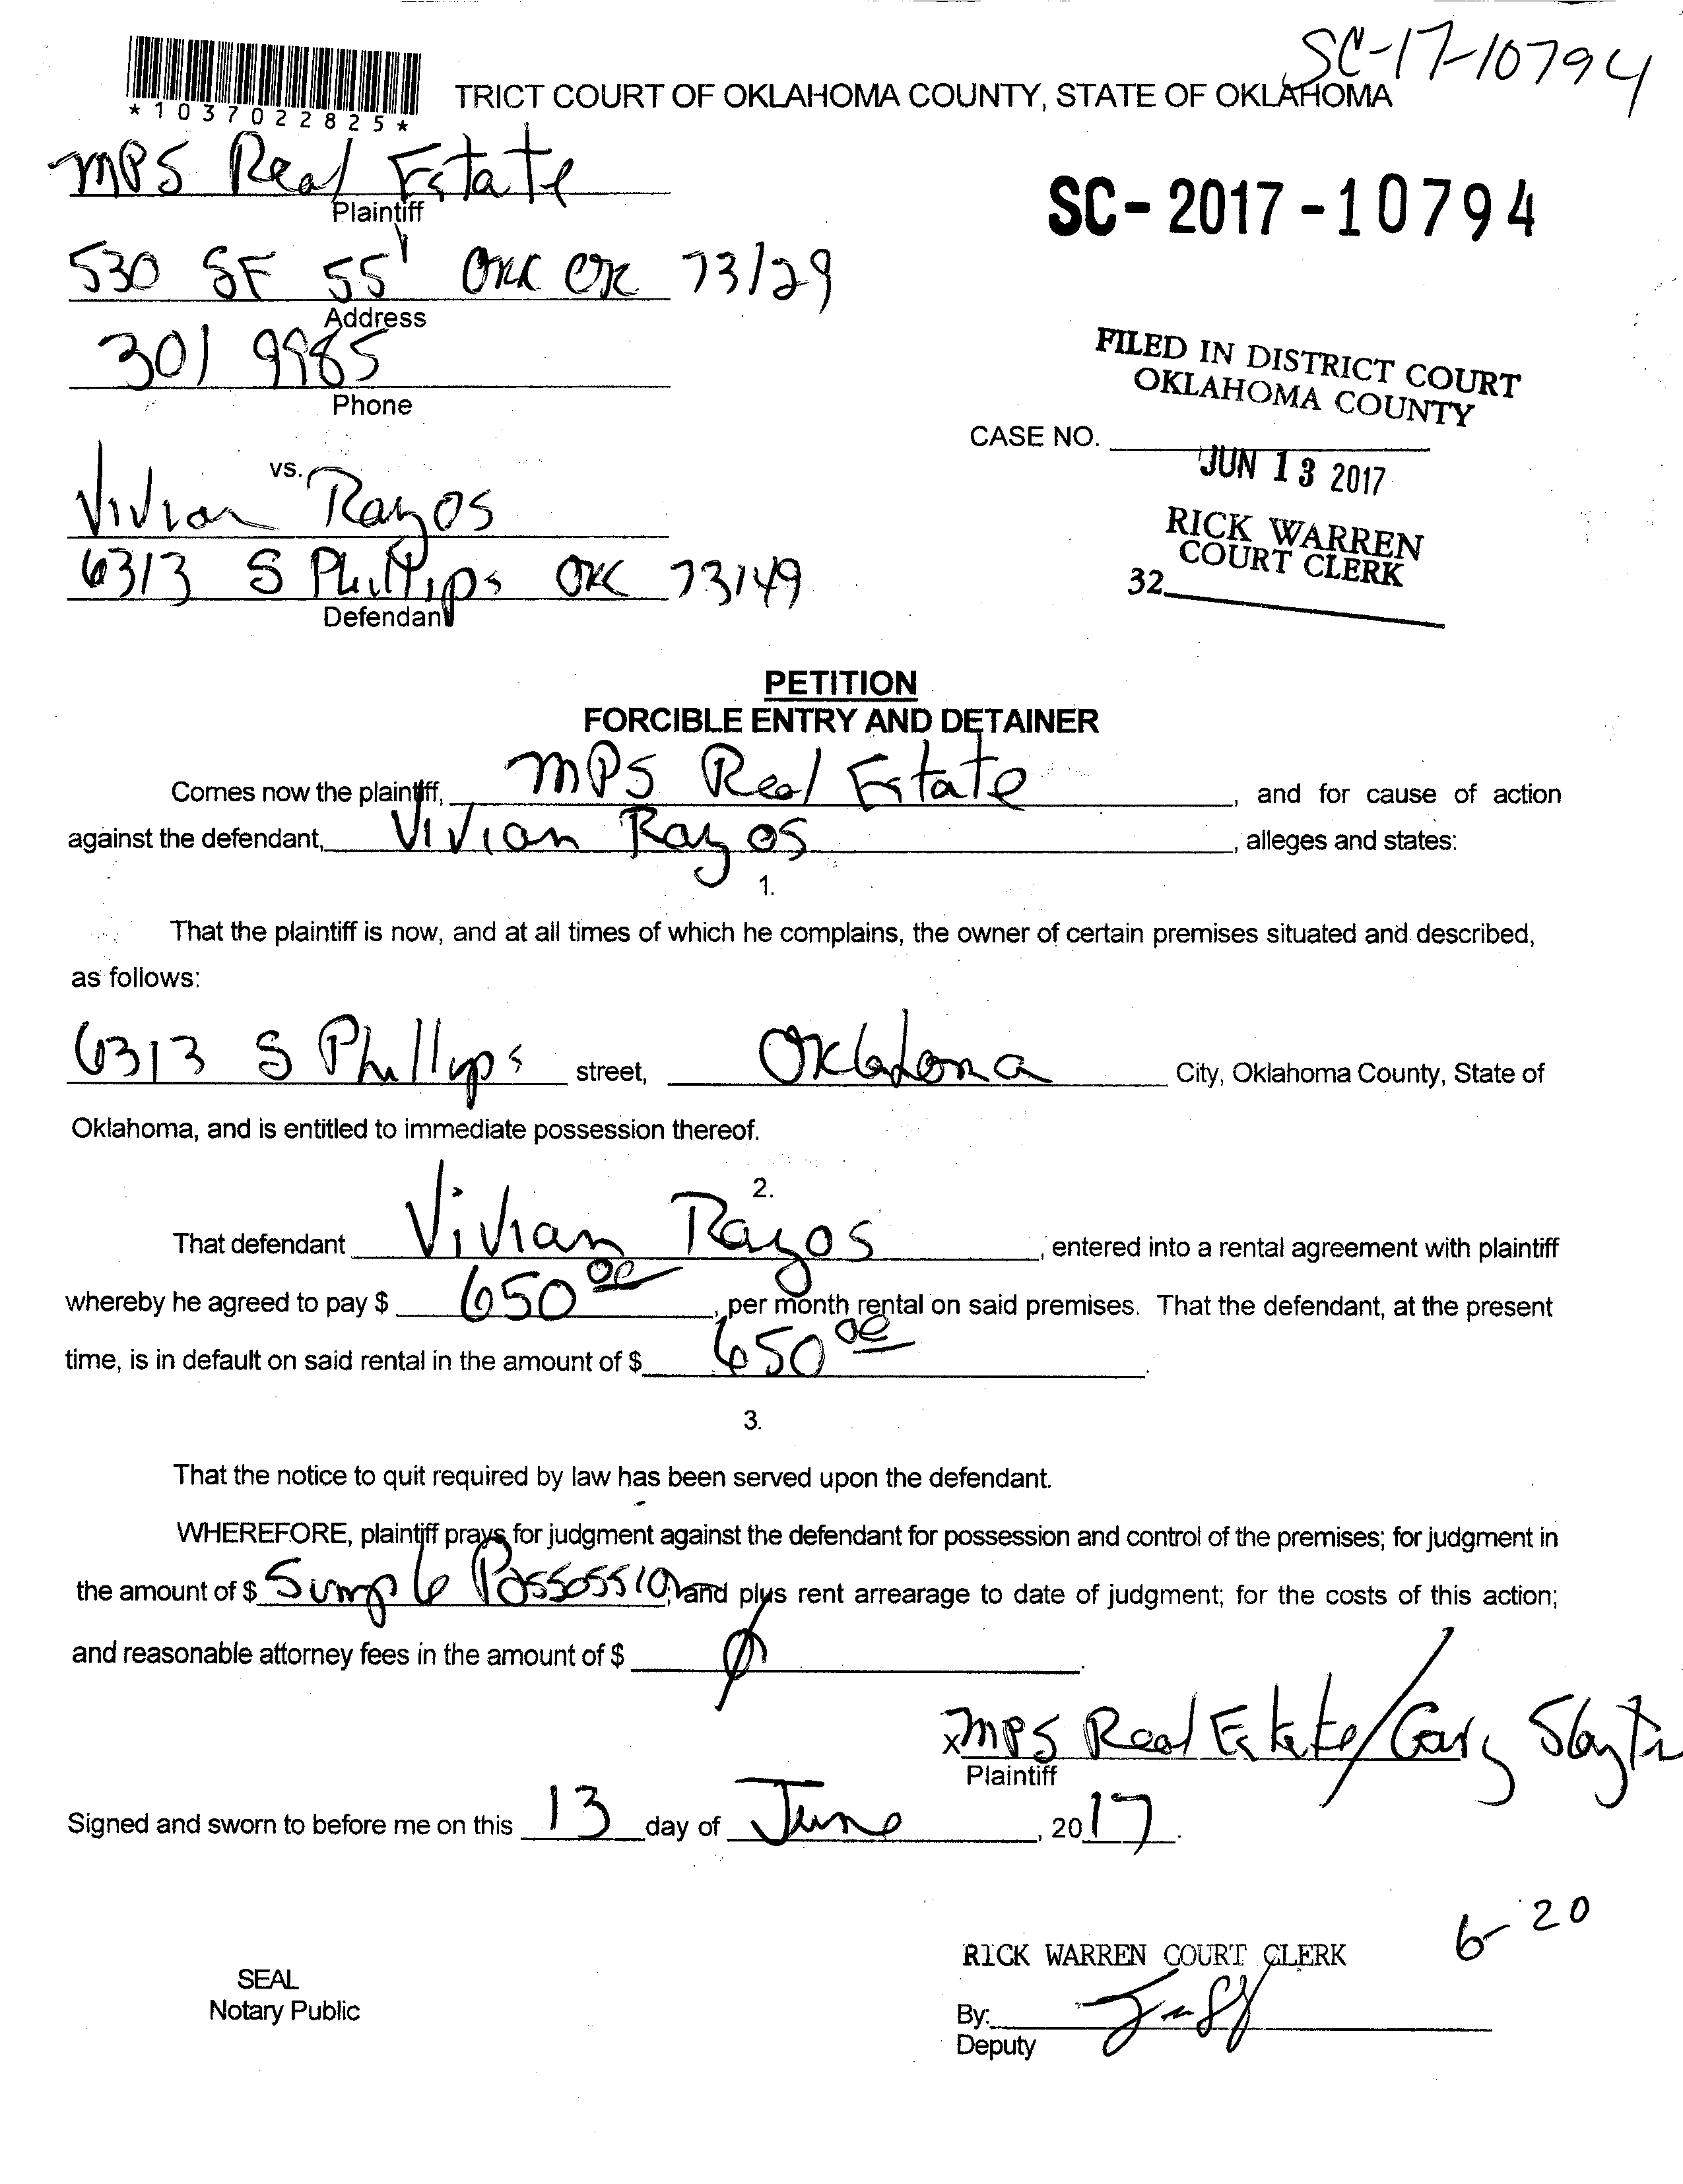 SC-17-10794
*1037022825*
TRICT COURT OF OKLAHOMA COUNTY, STATE OF OKLAHOMA
MPS Real Estate
Plaintiff
SC-2017-10794
530 SE 55 OKC OK 73129
Address
301 9985
Phone
FILED IN DISTRICT COURT
OKLAHOMA COUNTY
CASE NO.
JUN 13 2017
vs.
Vivian Rayos
RICK WARREN
COURT CLERK
6313 S Phillips OKC 73149
32
Defendant
PETITION
FORCIBLE ENTRY AND DETAINER
Comes now the plaintiff, MPS Real Estate, and for cause of action
against the defendant, Vivian Rayos, alleges and states:
1.
That the plaintiff is now, and at all times of which he complains, the owner of certain premises situated and described,
as follows:
6313 S Phillips street, Oklahoma City, Oklahoma County, State of
Oklahoma, and is entitled to immediate possession thereof.
2.
That defendant Vivian Rayos, entered into a rental agreement with plaintiff
whereby he agreed to pay $ 650 00, per month rental on said premises. That the defendant, at the present
time, is in default on said rental in the amount of $ 650 00.
3.
That the notice to quit required by law has been served upon the defendant.
WHEREFORE, plaintiff prays for judgment against the defendant for possession and control of the premises; for judgment in
the amount of $ Simple Possession, and plus rent arrearage to date of judgment; for the costs of this action;
and reasonable attorney fees in the amount of $ Ø.
x MPS Real Estate/Gary
Plaintiff
Signed and sworn to before me on this 13 day of June, 2017.
6-20
RICK WARREN COURT CLERK
SEAL
Notary Public
By:
Deputy